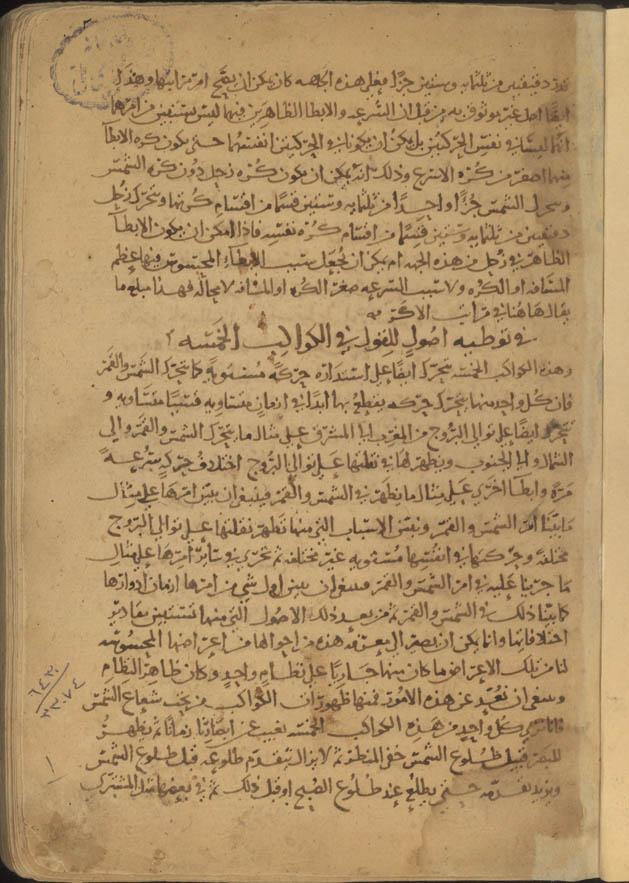 دقيقتين من ثلثمايه وستين جزءا فعلى هذه الجهه كان يمكن ان يصح امر مراتبها وهذا
ايضا اصل غير موثوق به من قبل ان السرعه والابطا الظاهرين فيها ليس يستبين من امرهما
انهما ليسا في نفس الحركتين بل يمكن ان يكونا في الحركتين انفسهما حتى يكون كره الابطا
منها اصغر من كره الاسرع وذلك انه يمكن ان يكون كره زحل دون كره الشمس
وتتحرك الشمس جزءا واحدا من ثلثمايه وستين قسما من اقسام كرتها ويتحرك زحل
دقيقتين من ثلثمايه وستين قسما من اقسام كره نفسه فاذا امكن ان يكون الابطا
الظاهر في زحل من هذه الجهه لم يمكن ان يجعل سبب الابطاء المحسوس فيها عظم
المسافه او الكره ولا سبب السرعه صغر الكره او المسافه لا محاله فهذا مبلغ ما
يقال هاهنا في مراتب الاكر
في توطيه اصول للقول في الكواكب الخمسه
وهذه الكواكب الخمسه تتحرك ايضا على استداره حركه مستويه كما تتحرك الشمس والقمر
فان كل واحد منها يتحرك حركه يقطع بها ابدا في ازمان متساويه قسيا متساويه و
تتحرك ايضا على توالي البروج من المغرب الى المشرق على مثال ما يتحرك الشمس والقمر والى
الشمال والى الجنوب ويظهر لها في نقلتها على توالي البروج اختلاف حركه بسرعه
مره وابطا اخرى على مثال ما يظهر في الشمس والقمر فينبغي ان نبين امرها على مثال
ما بينا امر الشمس والقمر ونبين الاسباب التي منها تظهر نقلتها على توالي البروج
مختلفه وحركتها في انفسها مستويه غير مختلفه ثم نجري في ساير امرها على مثال
ما جرينا عليه في امر الشمس والقمر فينبغي ان نبين اول شي من امرها ازمان ادوارها
كما بينا ذلك في الشمس والقمر ثم من بعد ذلك الاصول التي منها نستبين مقادير
اختلافاتها وانما يمكن ان نصير الى معرفه هذه من احوالها من اعراضها المحسوسه
لنا من تلك الاعراض ما كان منها جاريا على نظام واحد وكان ظاهر النظام
وينبغي ان نخبر عن هذه الامور فمنها ظهور ان الكواكب من تحت شعاع الشمس
فانا نرى كل واحد من هذه الكواكب الخمسه يغيب عن ابصارنا زمانا ثم يظهر
للبصر قبيل طلوع الشمس حتى المنظر ثم لا يزال يتقدم طلوعه قبل طلوع الشمس
ويزيد تقدمه حتى يطلع عند طلوع الصبح او قبل ذلك ثم في بعضها مثل المشتري
٦٤٣٠
٢٣٠٧٤
١